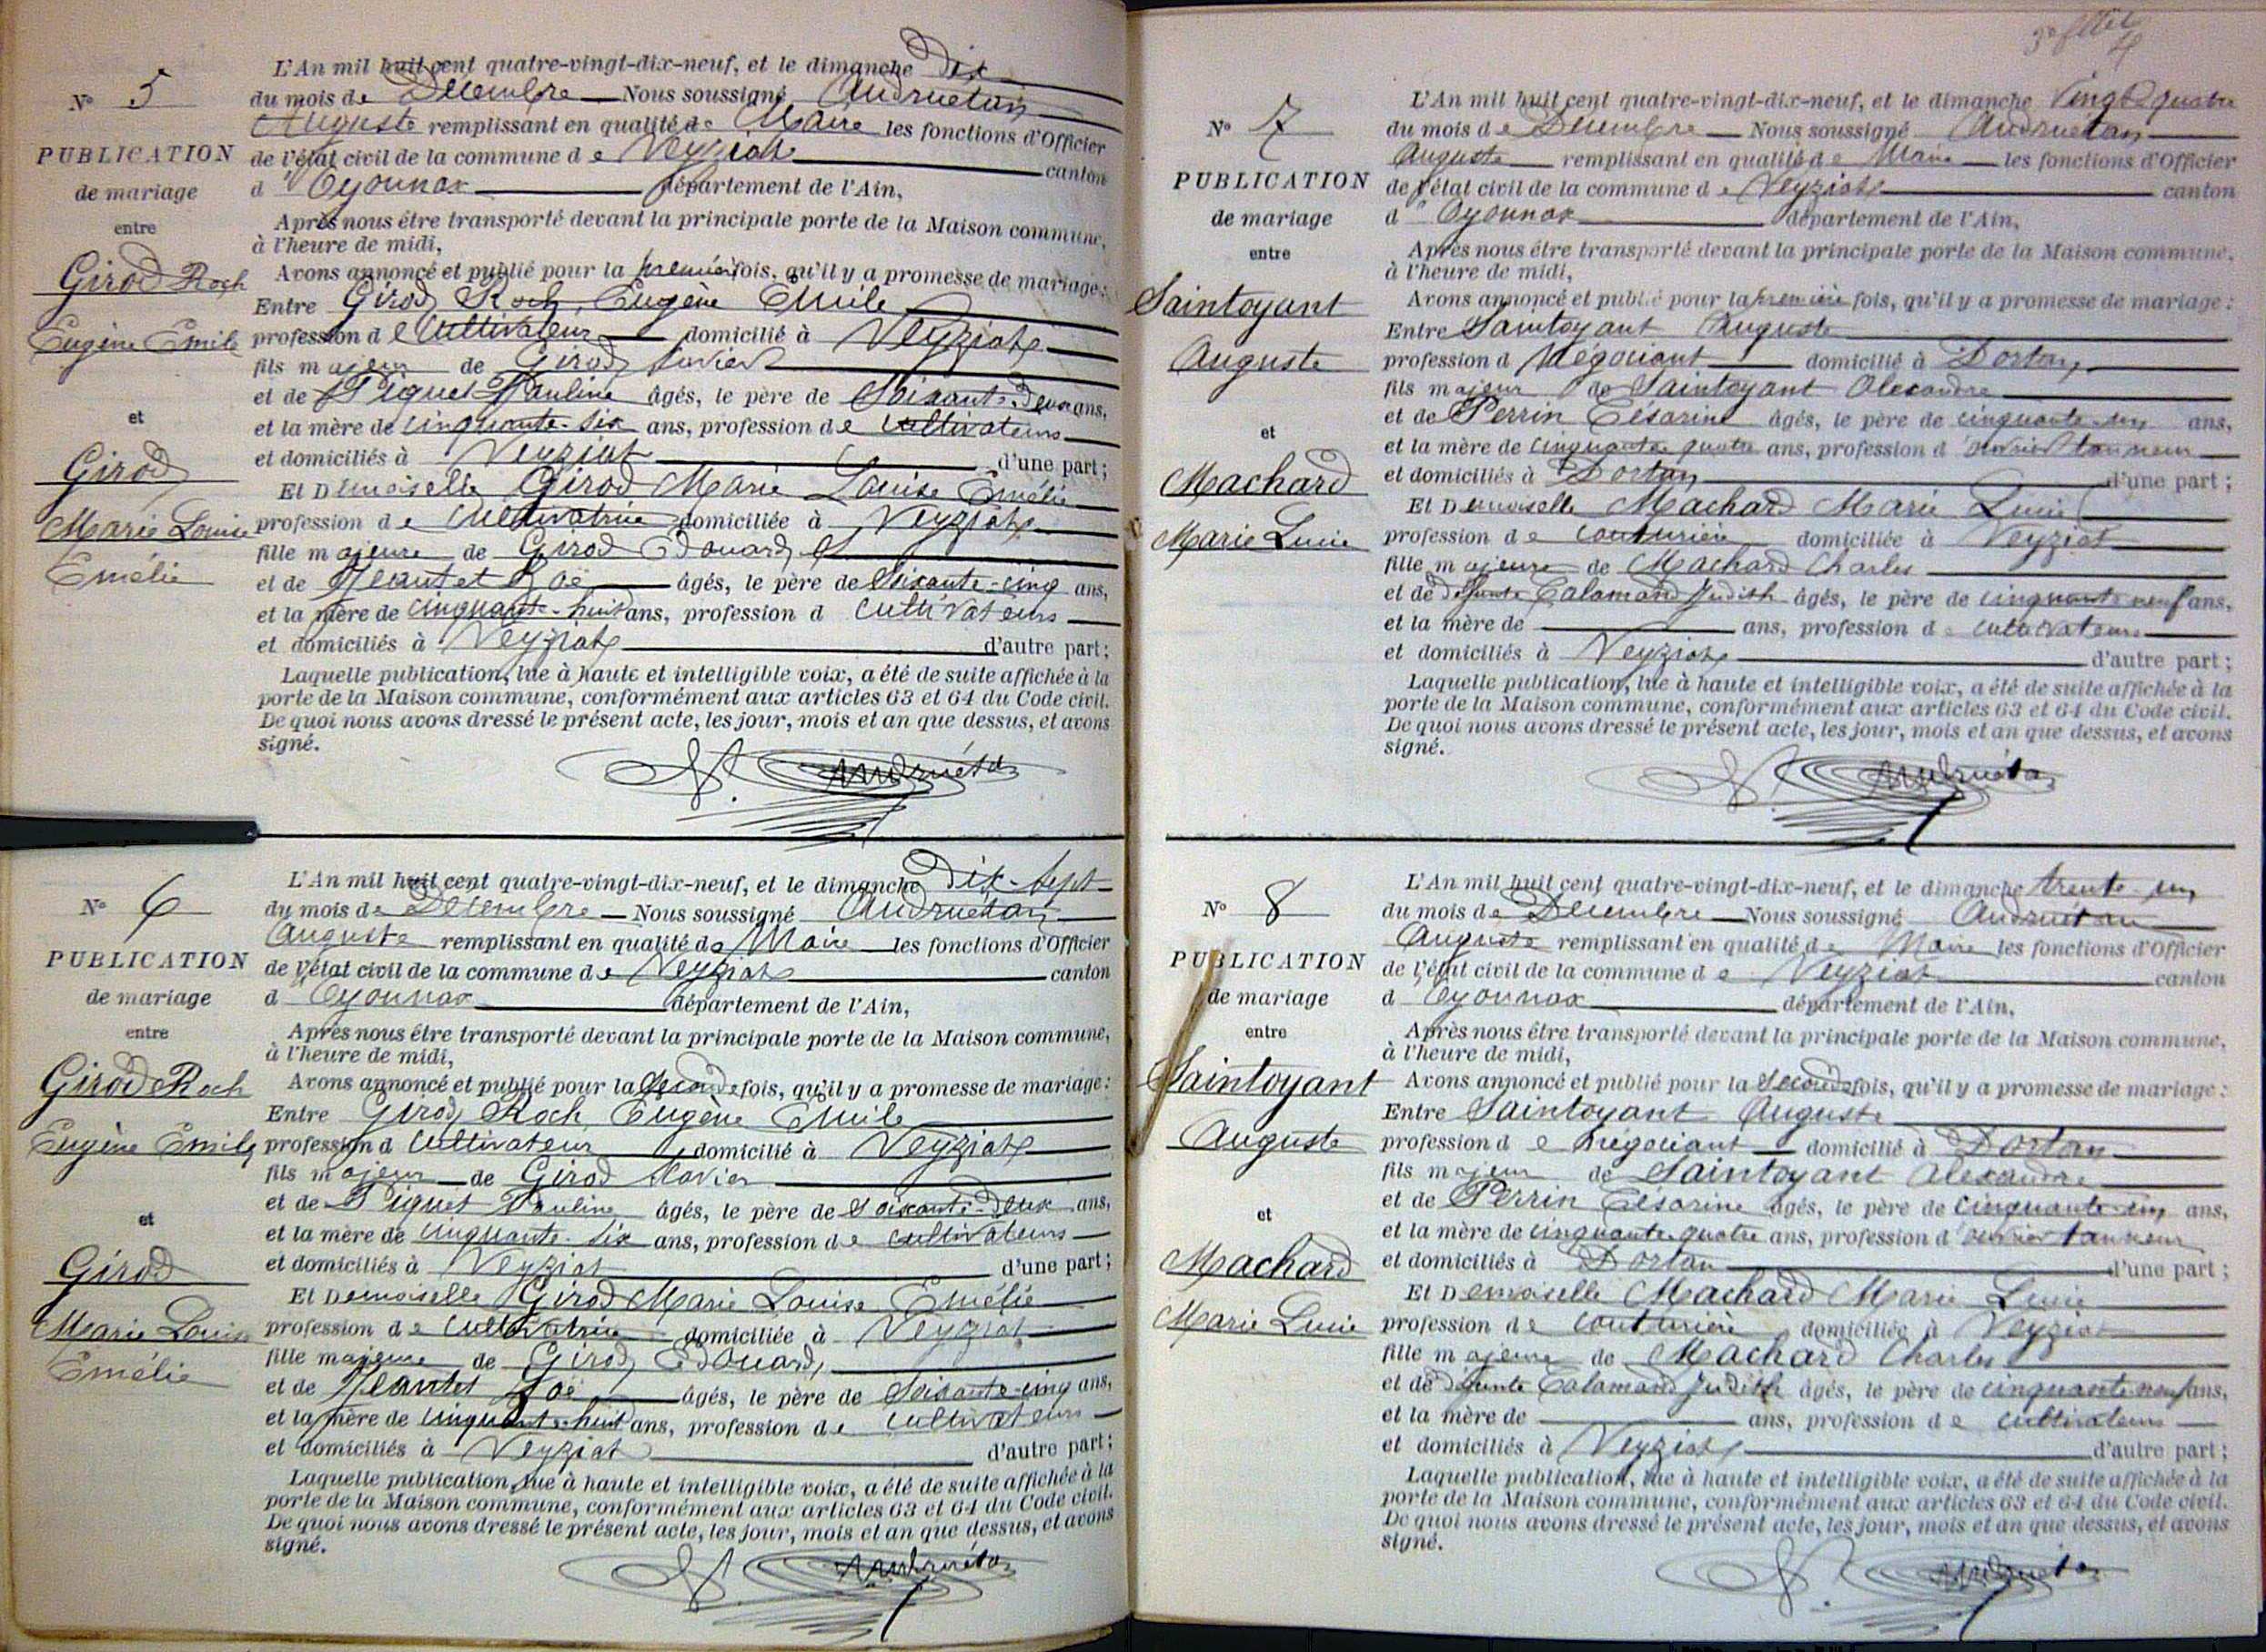 N° 5
PUBLICATION
de mariage
entre
Girod Roch
Eugène Emile
et
Girod
Marie Louise
Emélie
L'An mil huit cent quatre-vingt-dix-neuf, et le dimanche Dix
du mois de Décembre Nous soussigné Andruétan
Auguste remplissant en qualité de Maire les fonctions d'Officier
de l'état civil de la commune de Veyziat canton
d'Oyonnax département de l'Ain,
Après nous être transporté devant la principale porte de la Maison commune,
à l'heure de midi,
Avons annoncé et publié pour la première fois, qu'il y a promesse de mariage:
Entre Girod Roch, Eugène Emile
profession de cultivateur domicilié à Veyziat
fils majeur de Girod Xavier
et de Piquet Pauline âgés, le père de Soixante-Deux ans,
et la mère de cinquante-six ans, profession de cultivateurs
et domiciliés à Veyziat d'une part;
Et Demoiselle Girod Marie Louise Emélie
profession de cultivatrice domiciliée à Veyziat
fille majeure de Girod Edouard
et de Jeantet Zoé âgés, le père de Soixante-cinq ans,
et la mère de cinquante-huit ans, profession d cultivateurs
et domiciliés à Veyziat d'autre part;
Laquelle publication, lue à haute et intelligible voix, a été de suite affichée à la
porte de la Maison commune, conformément aux articles 63 et 64 du Code civil.
De quoi nous avons dressé le présent acte, les jour, mois et an que dessus, et avons
signé.
Andruétan
N° 6
PUBLICATION
de mariage
entre
Girod Roch
Eugène Emile
et
Girod
Marie Louise
Emélie
L'An mil huit cent quatre-vingt-dix-neuf, et le dimanche Dix-Sept
du mois de Décembre Nous soussigné Andruétan
Auguste remplissant en qualité de Maire les fonctions d'Officier
de l'état civil de la commune de Veyziat canton
d Oyonnax département de l'Ain,
Après nous être transporté devant la principale porte de la Maison commune,
à l'heure de midi,
Avons annoncé et publié pour la Seconde fois, qu'il y a promesse de mariage:
Entre Girod Roch, Eugène Emile
profession d cultivateur domicilié à Veyziat
fils majeur de Girod Xavier
et de Piquet Pauline âgés, le père de Soixante-Deux ans,
et la mère de cinquante-six ans, profession de cultivateurs
et domiciliés à Veyziat d'une part;
Et Demoiselle Girod Marie Louise Emélie
profession de cultivatrice domiciliée à Veyziat
fille majeure de Girod Edouard,
et de Jeantet Zoé âgés, le père de Soixante-cinq ans,
et la mère de cinquante-huit ans, profession de cultivateurs
et domiciliés à Veyziat d'autre part;
Laquelle publication, lue à haute et intelligible voix, a été de suite affichée à la
porte de la Maison commune, conformément aux articles 63 et 64 du Code civil.
De quoi nous avons dressé le présent acte, les jour, mois et an que dessus, et avons
signé.
Andruétan
N° 7
PUBLICATION
de mariage
entre
Saintoyant
Auguste
et
Machard
Marie Lucie
L'An mil huit cent quatre-vingt-dix-neuf, et le dimanche Vingt quatre
du mois de Décembre Nous soussigné Andruétan
Auguste remplissant en qualité de Maire les fonctions d'Officier
de l'état civil de la commune de Veyziat canton
d'Oyonnax département de l'Ain,
Après nous être transporté devant la principale porte de la Maison commune,
à l'heure de midi,
Avons annoncé et publié pour la première fois, qu'il y a promesse de mariage:
Entre Saintoyant Auguste
profession d Négociant domicilié à Dortan
fils majeur de Saintoyant Alexandre
et de Perrin Césarine âgés, le père de cinquante-un ans,
et la mère de cinquante quatre ans, profession d'ouvrier tanneur
et domiciliés à Dortan d'une part;
Et Demoiselle Machard Marie Lucie
profession de couturière domiciliée à Veyziat
fille majeure de Machard Charles
et de défunte Calamard Judith âgés, le père de cinquante neuf ans,
et la mère de ans, profession de cultivateurs
et domiciliés à Veyziat d'autre part;
Laquelle publication, lue à haute et intelligible voix, a été de suite affichée à la
porte de la Maison commune, conformément aux articles 63 et 64 du Code civil.
De quoi nous avons dressé le présent acte, les jour, mois et an que dessus, et avons
signé.
Andruétan
N° 8
PUBLICATION
de mariage
entre
Saintoyant
Auguste
et
Machard
Marie Lucie
L'An mil huit cent quatre-vingt-dix-neuf, et le dimanche trente-un
du mois de Décembre Nous soussigné Andruétan
Auguste remplissant en qualité de Maire les fonctions d'Officier
de l'état civil de la commune de Veyziat canton
d Oyonnax département de l'Ain,
Après nous être transporté devant la principale porte de la Maison commune,
à l'heure de midi,
Avons annoncé et publié pour la Seconde fois, qu'il y a promesse de mariage:
Entre Saintoyant Auguste
profession de négociant domicilié à Dortan
fils majeur de Saintoyant Alexandre
et de Perrin Césarine âgés, le père de cinquante-un ans,
et la mère de cinquante quatre ans, profession d'ouvrier tanneur
et domiciliés à Dortan d'une part;
Et Demoiselle Machard Marie Lucie
profession de couturière domiciliée à Veyziat
fille majeure de Machard Charles
et de défunte Calamard Judith âgés, le père de cinquante neuf ans,
et la mère de ans, profession de cultivateurs
et domiciliés à Veyziat d'autre part;
Laquelle publication, lue à haute et intelligible voix, a été de suite affichée à la
porte de la Maison commune, conformément aux articles 63 et 64 du Code civil.
De quoi nous avons dressé le présent acte, les jour, mois et an que dessus, et avons
signé.
Andruétan